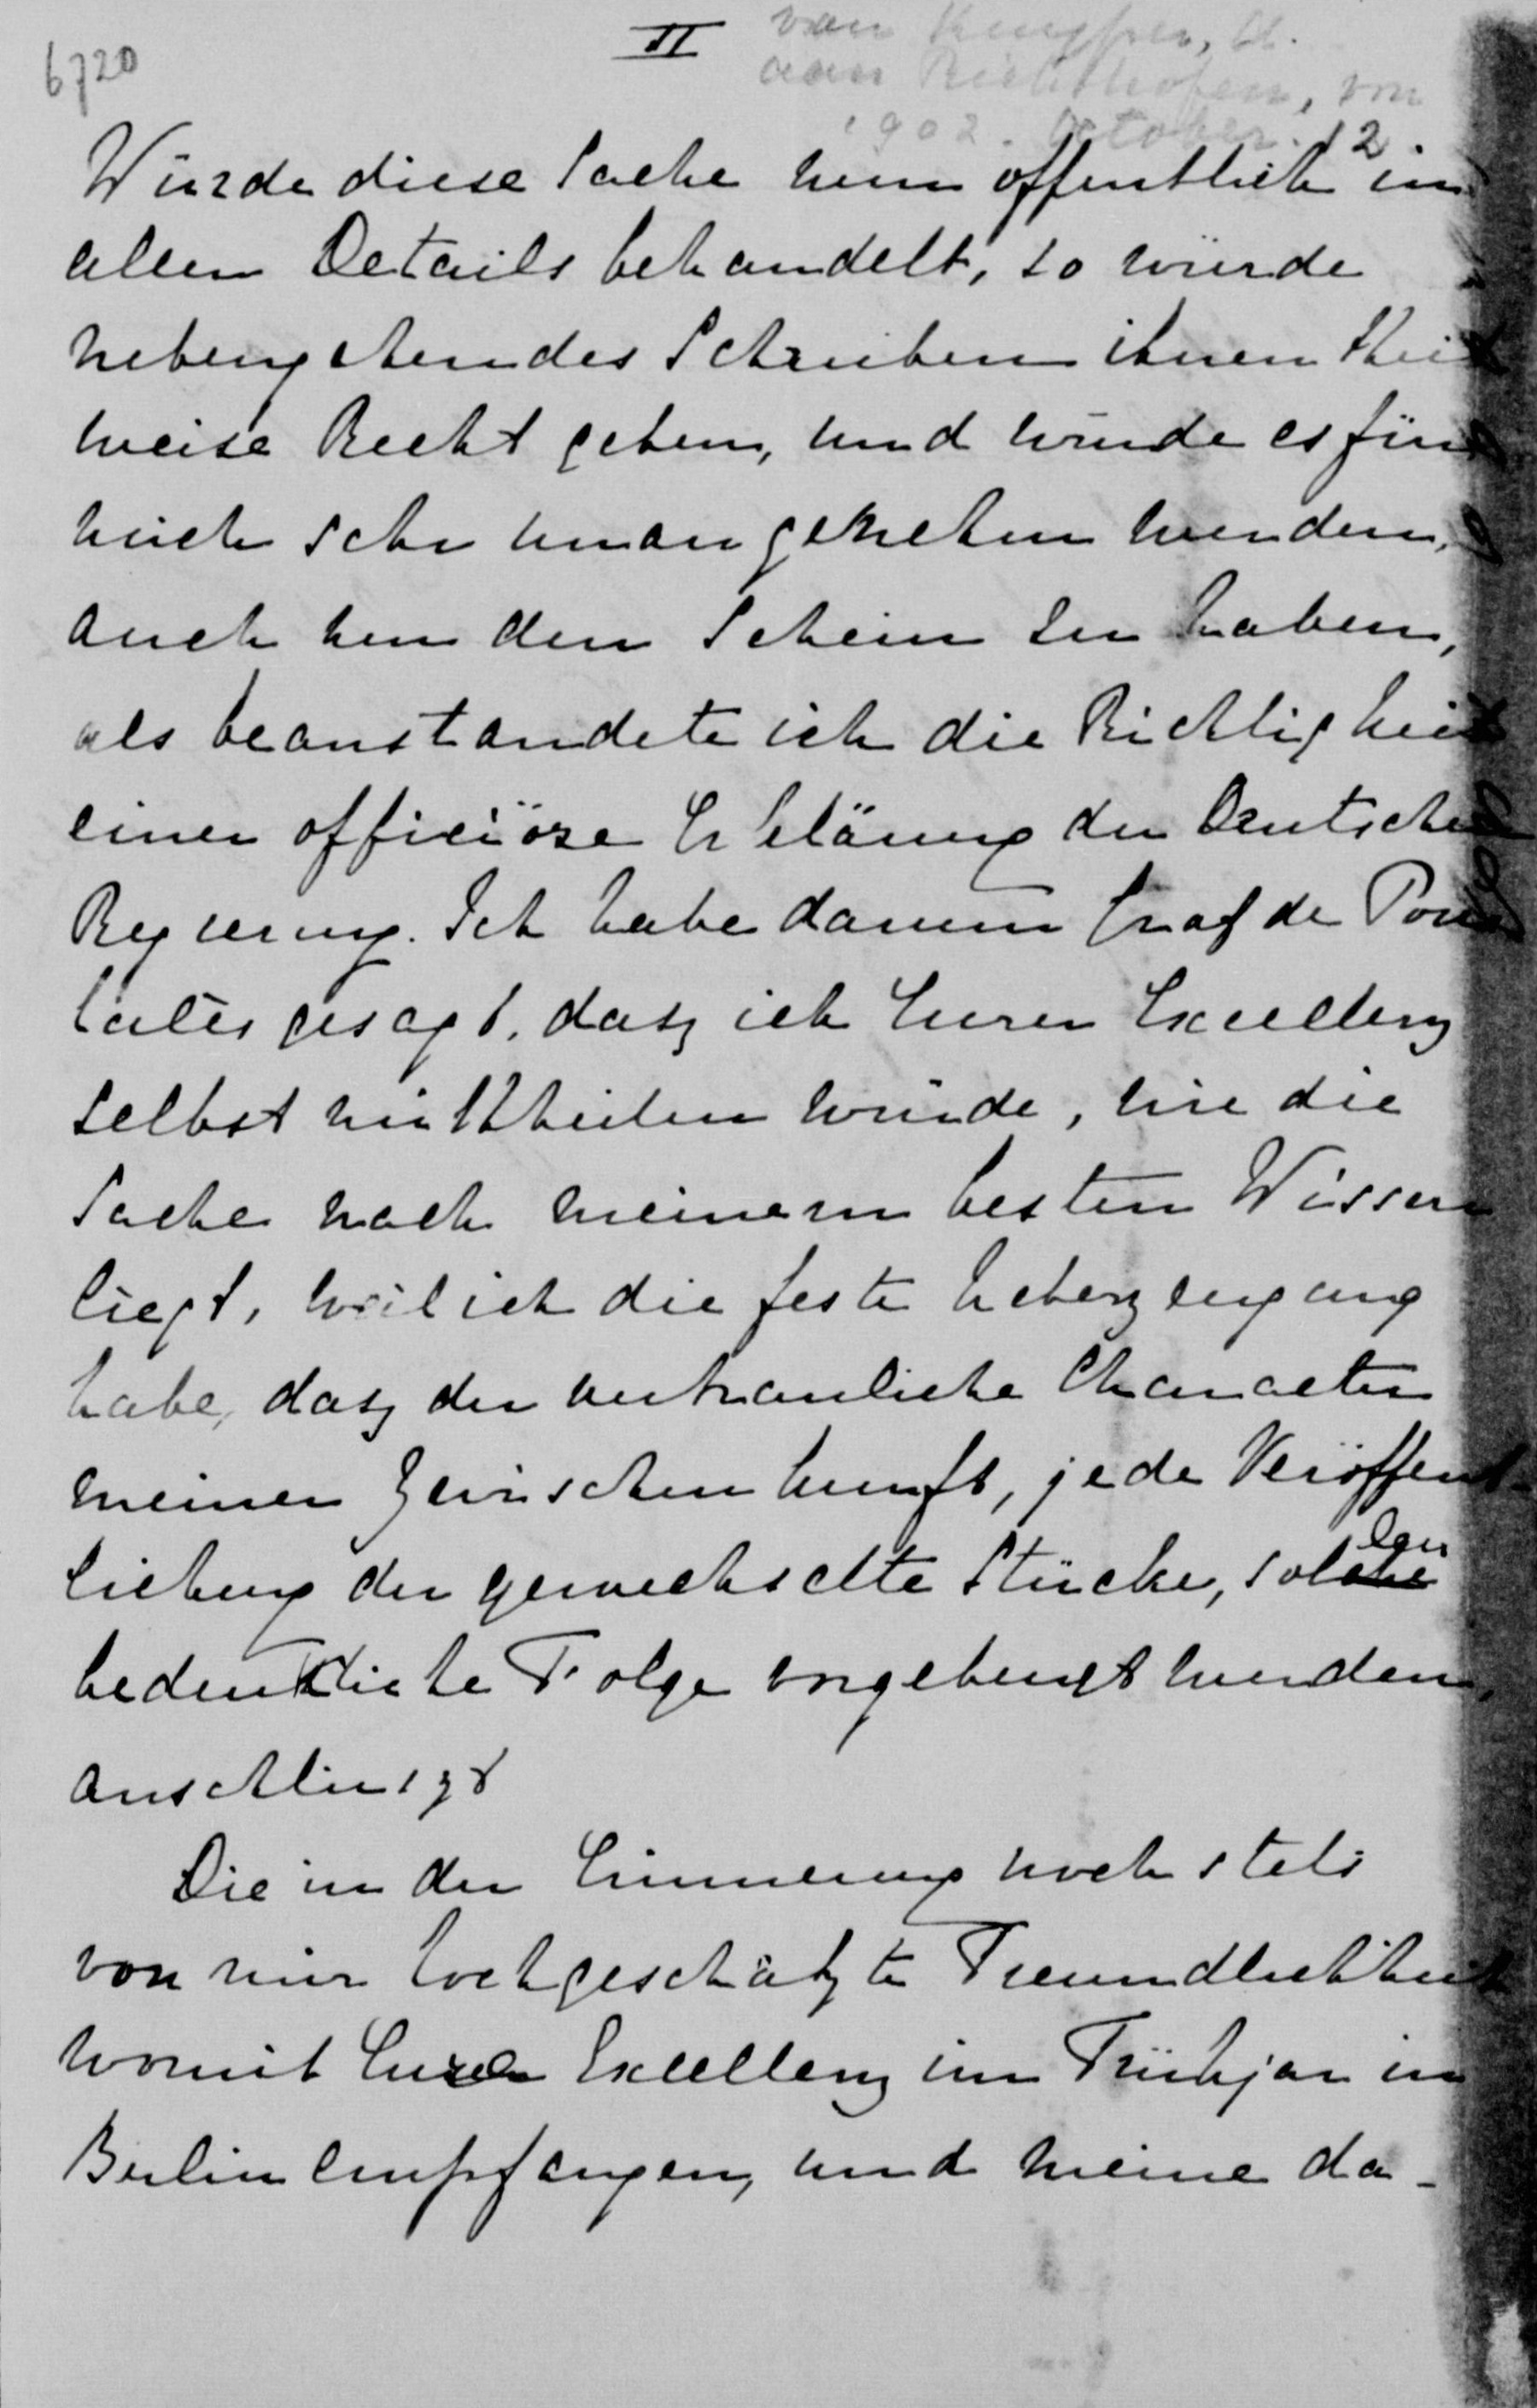 6720
II
van Kuyper, A.
aan Richthofen, von
1902. October. 12
Würde diese Sache nun öffentlich in
allen Details behandelt, so würde
nebengehendes Schreiben ihnen theil
weise Recht geben, und würde es für
mich sehr unangenehm werden,
auch nur den Schein zu haben,
als beanstandete ich die Richtigkeit
einer officiöse Erklärung der Deutschen
Regierung. Ich habe darum Graf de Pour
talès gesagt, dasz ich Eurer Excellenz
selbst mittheilen würde, wie die
Sache nach meinem besten Wissen
liegt, weil ich die feste Ueberzeugung
habe, dasz der vertrauliche Character
meiner Zwischenkunft, jede Veröffent
lichung der gewechselte Stücke, solchen
bedenkliche Folge vorgebeugt werden,
ausschlieszt
Die in der Erinnerung noch stets
von mir hochgeschätzte Freundlichkeit
womit Eure Excellenz im Frühjar in
Berlin empfangen, und meine da-